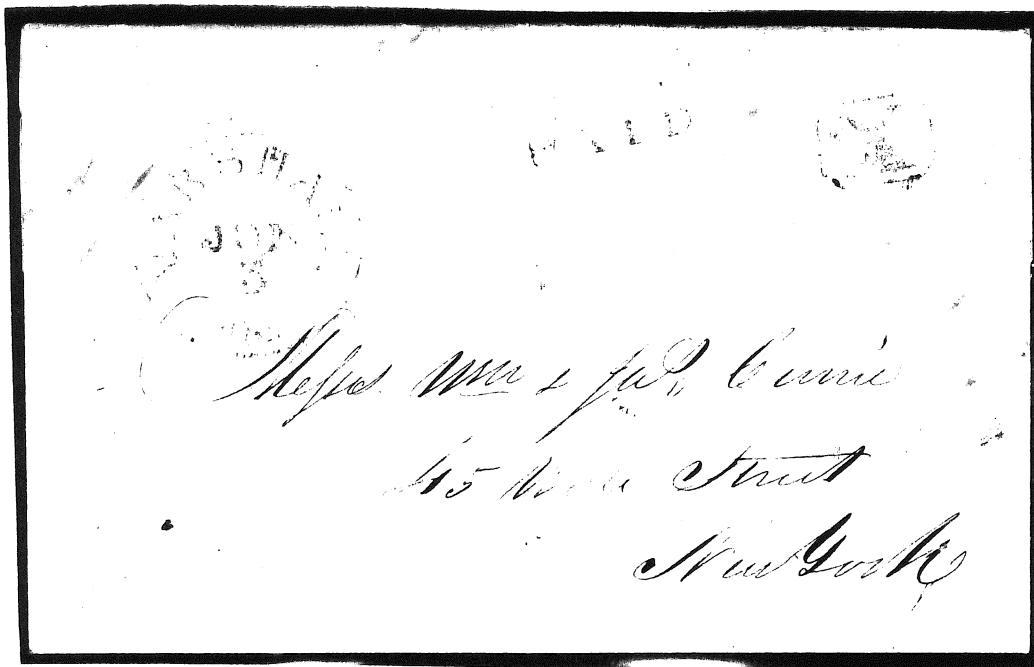 PAID
MARSHALL
JUN
8
Messrs Wm & Jas Currie
45 Street
New York